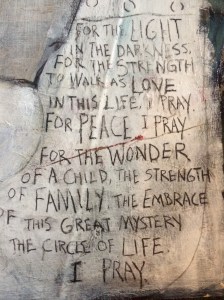 FOR THE LIGHT
IN THE DARKNESS.
FOR THE STRENGTH
TO WALK AS LOVE
IN THIS LIFE, I PRAY.
FOR PEACE, I PRAY
FOR THE WONDER
OF A CHILD, THE STRENGTH
OF FAMILY. THE EMBRACE
OF THIS GREAT MYSTERY
THE CIRCLE OF LIFE.
I PRAY.